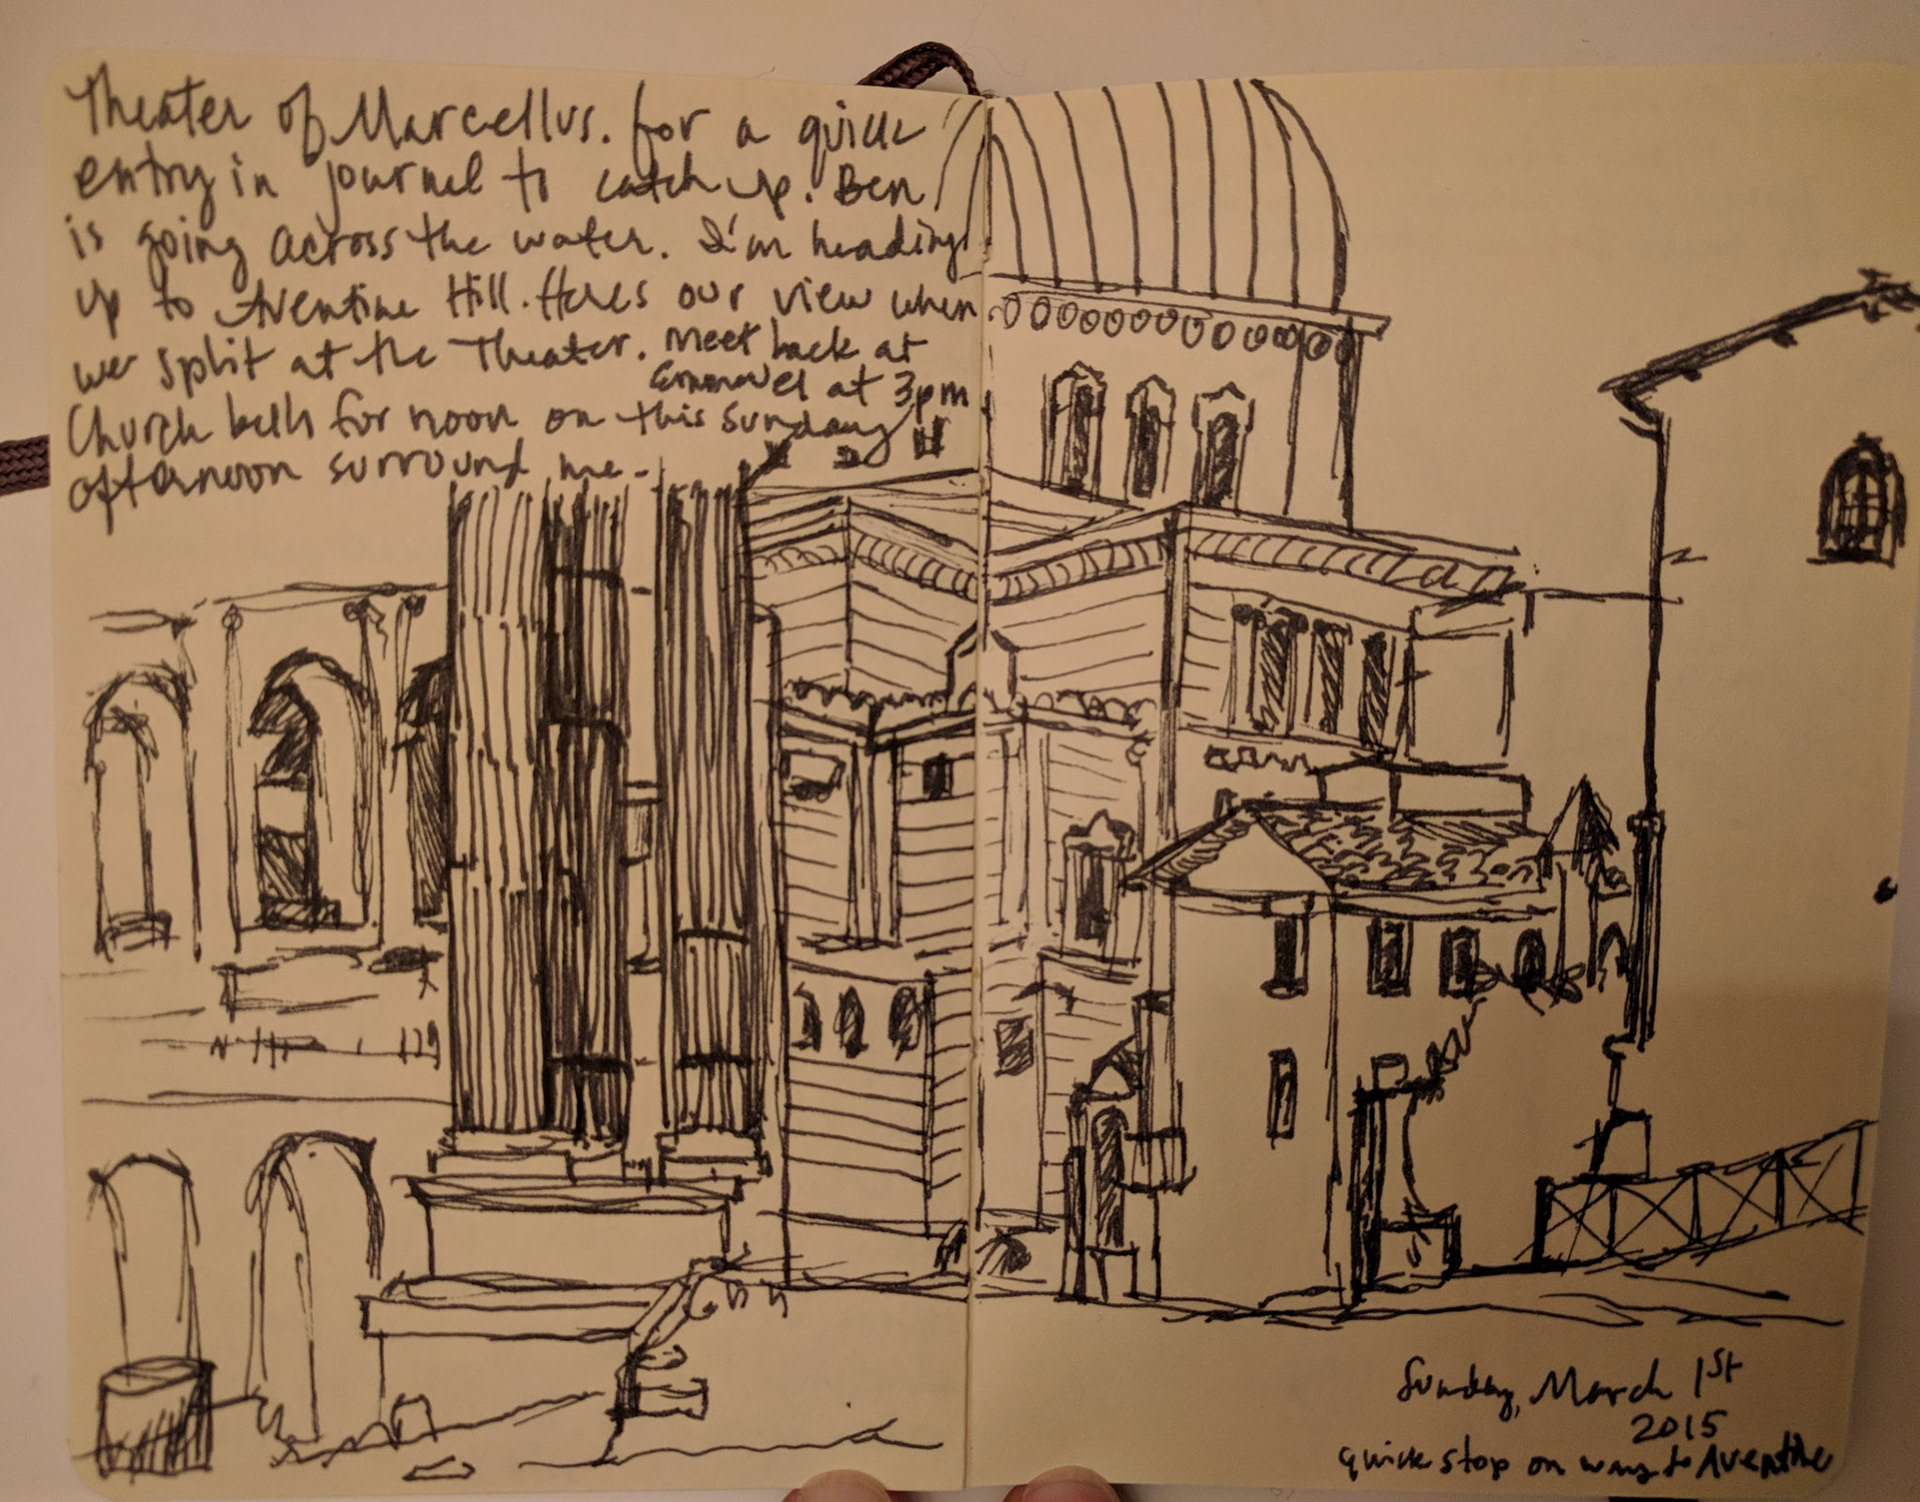 Theater of Marcellus. for a quick
entry in journal to catch up. Ben
is going across the water. I'm heading
up to Aventine Hill. Heres our view when
we split at the Theater. Meet back at
Emmanuel at 3pm
Church bells for noon on this Sunday
afternoon surround me.
Sunday, March 1st
2015
quick stop on way to Aventine